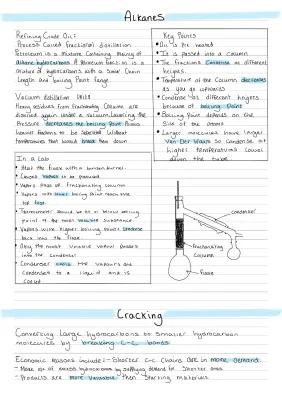 Alkanes
Refining Crude Oil:
Process called fractional distillation
Petroleum is a mixture containing mainly of
alkane hydrocarbons. A Petroleum fraction is a
mixture of hydrocarbons with a similar chain
length and boiling point range.
Vacuum distillation
Heavy residues from fractionating column are
distilled again under a vacuum. Lowering the
Pressure decreases the boiling point
heavier fractions to be separated without
temperatures that would break them down
Key Points
• Oil is pre heated
• It is passed into a column
• The fractions condense at different
heights.
• Temperature of the column decreases
as you go upwards
• Condense at different heights
because of boiling Point
• Boiling Point depends on the
size of the atoms
• Larger molecules have larger
Van Der Waals so condense at
higher temperatures lower
down the tube
In a Lab
• Heat the flask with a bunsen burner.
• Causes vapours to be produced
• Vapours pass up fractionating column
• Vapours with lower boiling point reach
the top
• Thermometer should be at or below boiling
point of the most volatile substance.
• Vapours with higher boiling points condense
back into the flask.
• Only the most volatile vapour passes
into the condenser
• Condenser cools the vapours and
condenses to a liquid and is
condenser
fractionating
column
flask
Cracking
Converting large hydrocarbons to smaller hydrocarbon
molecules by breaking C-C bonds
Economic reasons include:- Shorter C-C chains are in more demand.
- Make use of excess hydrocarbons by supplying demand for shorter ones.
- Products are more valuable than starting materials.